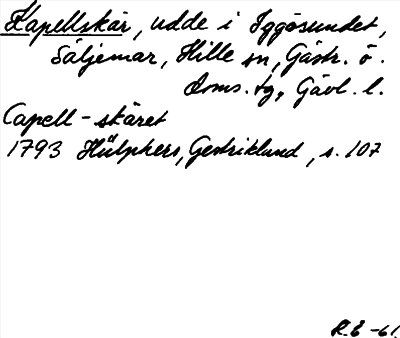 Kapellskär, udde i Iggösundet,
Säljemar, Hille sn, Gästr. ö.
doms. tg, Gävl. l.
Capell-skäret
1793 Hülphers, Gestriklund, s. 107
R.E -61.